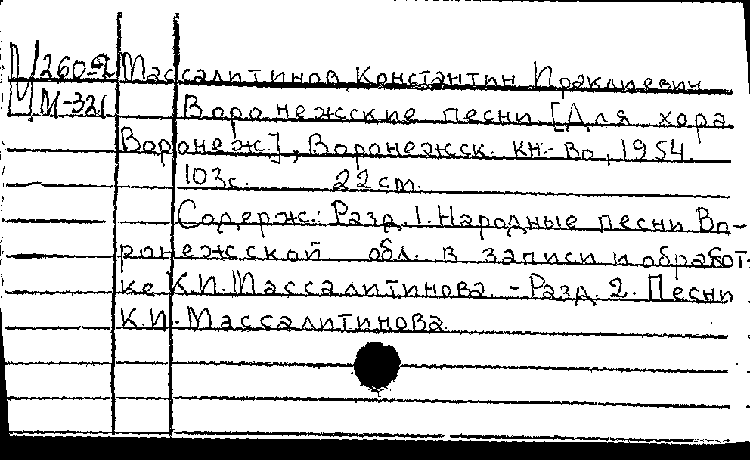 М260-2 Массалитинов, Константин Ираклиевич
М-321 Воронежские песни [Для хора
Воронеж], Воронежск. кн-во, 1954.
103с. 22cm.
Содерж.: Разд. 1. Народные песни Во-
ронежской обл. в записи и обработ-
ке К.И. Массалитинова. - Разд. 2. Песни
К.И. Массалитинова.